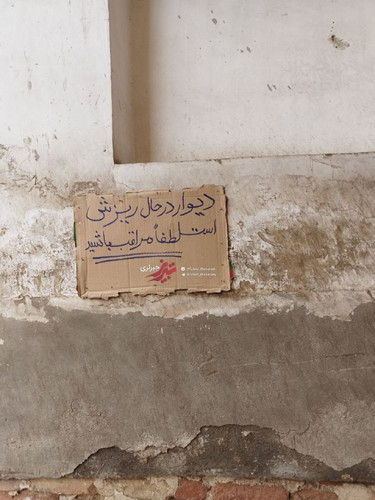 دیوار در حال ریزش
است لطفاً مراقب باشید
خبرازی